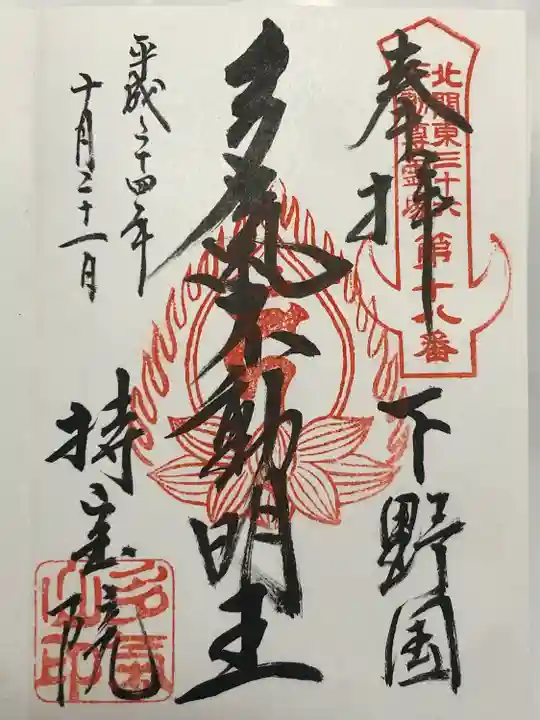 奉拝
北関東三十六
不動尊霊場
第十八番
下野国
多気不動明王
平成二十四年
十月二十一日
持宝院